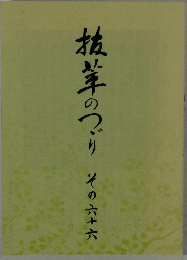 抜萃のつゞり
その六十六